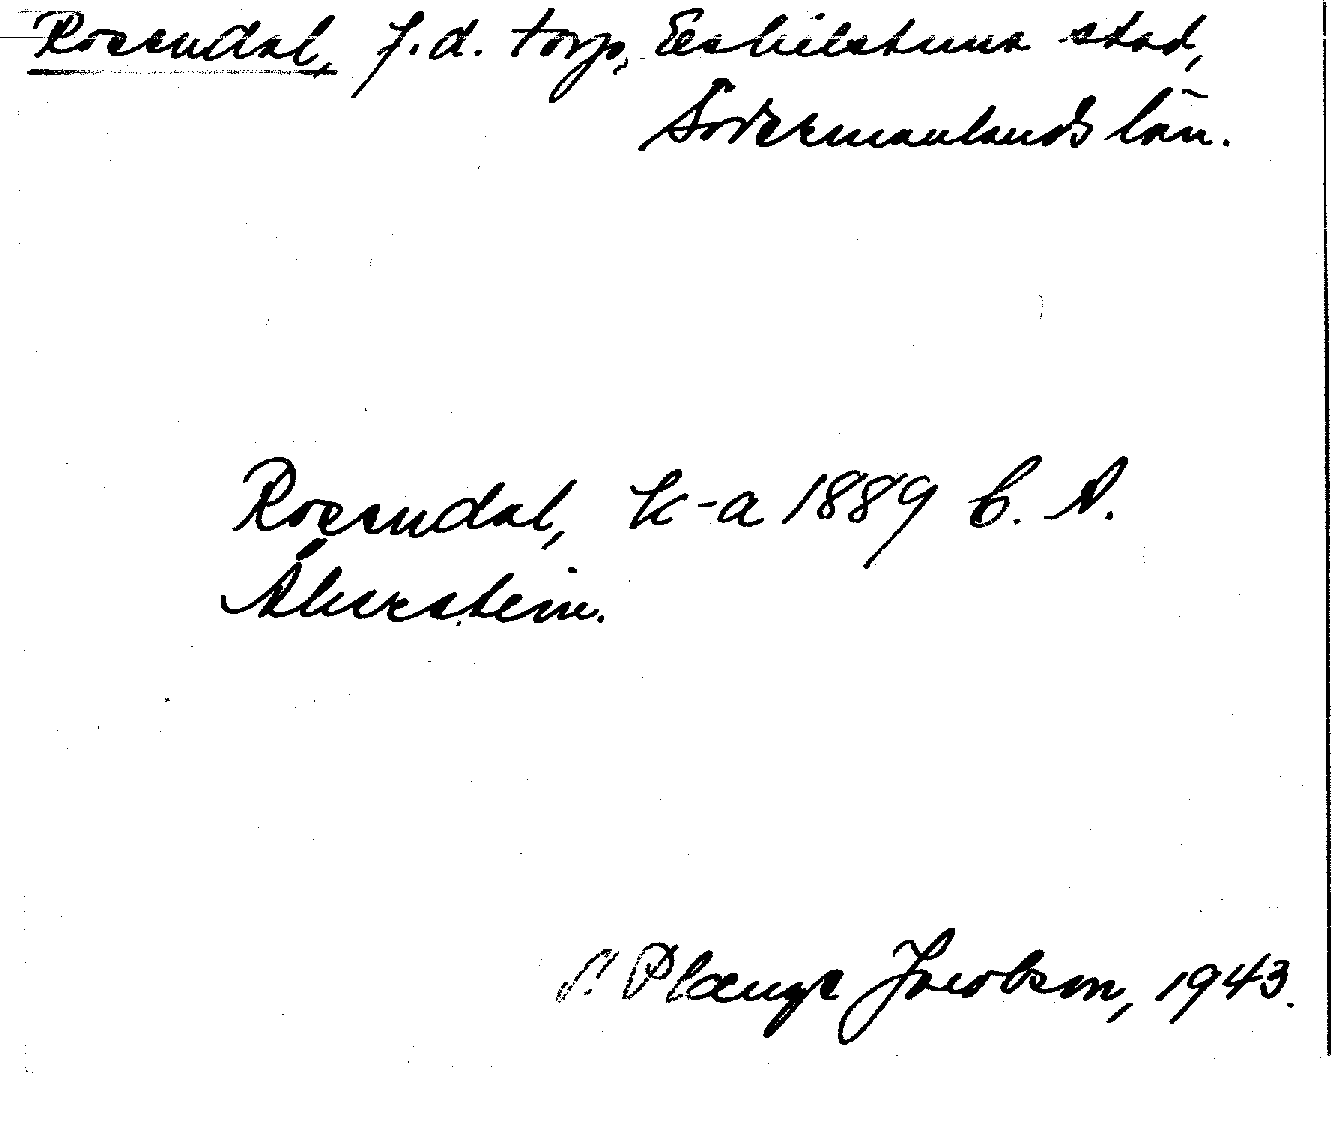 Rosendal, f.d. torp, Eskilstuna stad,
Södermanlands län.
Rosendal, k-a 1889 C. A.
Åkerstein.
Plænge Jacobson, 1943.